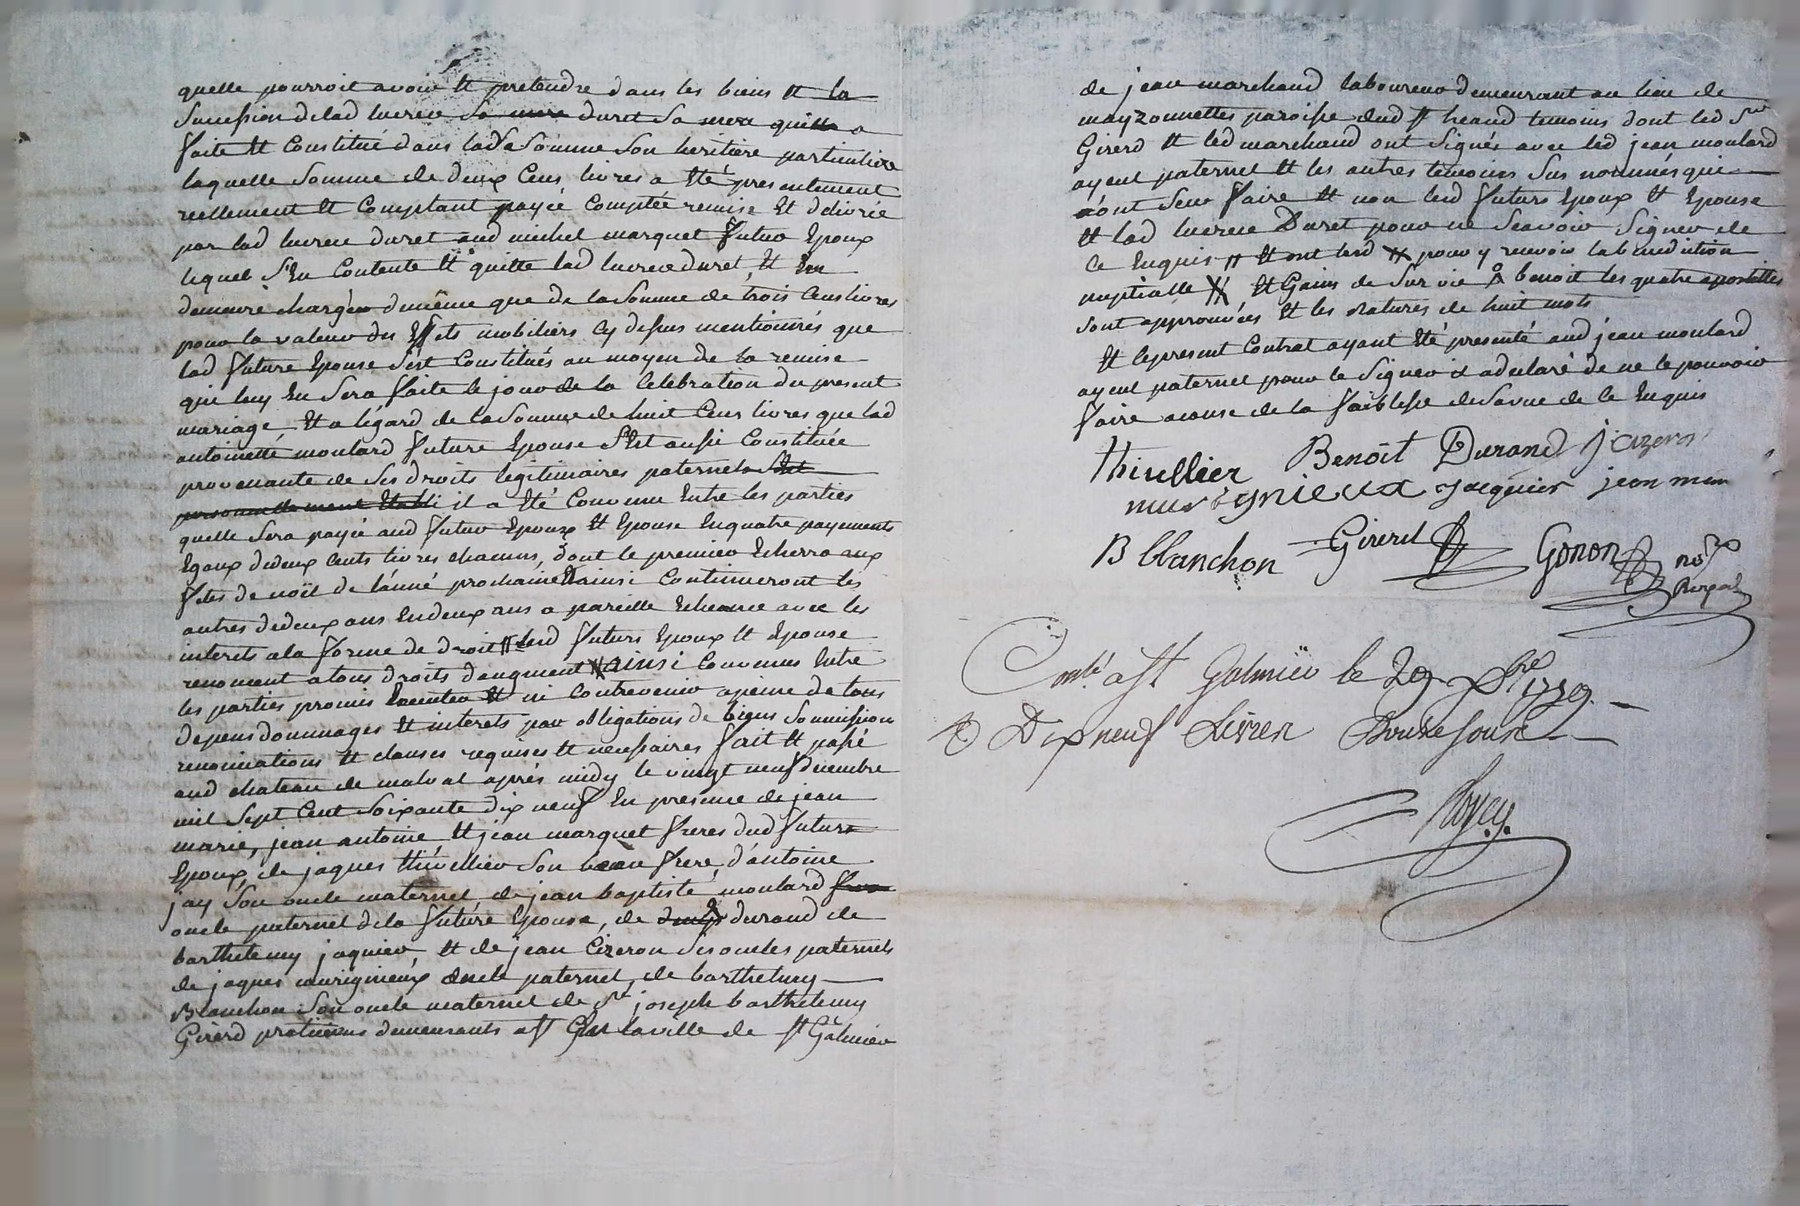 quelle pourroit avoir et pretendre dans les biens et la
succession de lad lucrece sa mere duret sa mere quelle a
faite et Constitué dans lad Somme Son heritiere particuliere
laquelle Somme de deux Cens livres a eté presentement
reellement et Comptant payée Comptée remise Et delivrée
par lad lucrece duret aud michel marquet futur Epoux
lequel S'En Contente et quitte lad lucrece duret, et En
demeure chargée de même que de la Somme de trois Cens livres
pour la valeur des Effets mobiliers cy dessus mentionnés que
lad future Epouse S'est Constitués au moyen de la remise
qui luy En Sera faite le jour de la Celebration du present
mariage, Et a légard de la Somme de huit Cens livres que lad
antoinette moulard future Epouse S'Est aussi Constituée
provenante de Ses droits legitimaires paternels Est
personnellement Etabli il a Eté Convenu Entre les parties
quelle Sera payée aud futur Epoux Et Epouse En quatre payements
Egaux de deux Cents livres chacuns, dont le premier Echerra aux
fetes de noël de lanné prochaine Et ainsi Continueront les
autres de deux ans En deux ans a pareille Echeance avec les
interets a la forme de droit lesd futurs Epoux Et Epouse
renoncent a tous droits daugment ainsi Convenus Entre
les parties promis Executer Et ni Contrevenir a peine de tous
depens dommages Et interets par obligations de biens Soumission
renonciations Et clauses requises Et necessaires fait Et passé
aud chateau de malval après midy le vingt neuf decembre
mil Sept Cent Soixante dix neuf En presence de jean
marie, jean antoine Et jean marquet freres dud futur
Epoux, de jaques thivellier Son beau frere, d'antoine
jay Son oncle maternel, de jean baptiste moulard
oncle paternel de la future Epouse, de durand de
barthelemy jaquier, Et de jean Cizeron Ses oncles paternels
de jaques murignieux oncle paternel, de barthelemy
Blanchon Son oncle maternel de Sr joseph barthelemy
Girerd praticiens demeurants laville de St Galmier
de jean marchand laboureur demeurant au lieu de
mayzonnettes paroisse dud St heand temoins dont led Sr
Girerd Et led marchand ont Signés avec led jean moulard
ayeul paternel Et les autres temoins Sus nommés qui
n'ont Seu faire Et non lesd futurs Epoux Et Epouse
Et lad lucrece Duret pour ne Scavoir Signer de
Ce Enquis Et ont lesd pour y recevoir la benediction
nuptialle Et Gains de Survie benoit les quatre apostilles
Sont approuvées Et les ratures de huit mots
Et le present Contrat ayant Eté presenté aud jean moulard
ayeul paternel pour le Signer a declaré de ne le pouvoir
faire a cause de la faiblesse de Sa vue de Ce Enquis
thivellier Benoit Durand j cizeron
murignieux jacquier jean
B Blanchon Girerd Gonon nore
Royal
Conlé a St Galmier le 29 Xbre 1779.
R Dix neuf Livres Douze Sous